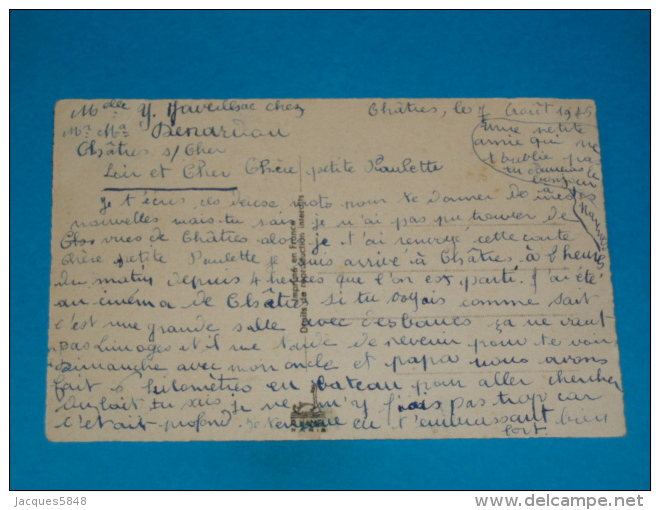 Mdelle Y. Javeillac chez
Mr Ma Denardou
Châtres s/ Cher
Loir et Cher
Châtres, le 7 Août 1945
Chère petite Paulette
Je t'écris ces deux mots pour te donner de mes
nouvelles mais tu sais je n'ai pas pu trouver de
vues de Châtres alors je t'ai renvoyé cette carte
chère petite Paulette je suis arrivé à Châtres à 1 heures
du matin depuis 4 heures que l'on est parti. J'ai été
au cinéma de Châtres si tu voyais comme sait
c'est une grande salle avec des bancs ça ne vaut
pas Limoges et il me tarde de revenir pour te voir
Dimanche avec mon oncle et papa nous avons
fait 5 kilomètres en bateau pour aller chercher
du lait tu sais je ne m'y fiais pas trop car
c'était profond. Je termine en t'embrassant bien
fort.
Une petite
amie qui ne
t'oublie pas
tu donneras le
bonjour
à
Imprimé en France
Droits de reproduction interdits
PARIS
Jacques5848
www.delcampe.net